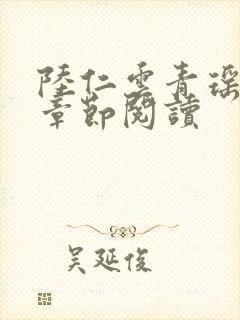 陸仁雲青瑶
章節閱讀
吴延俊